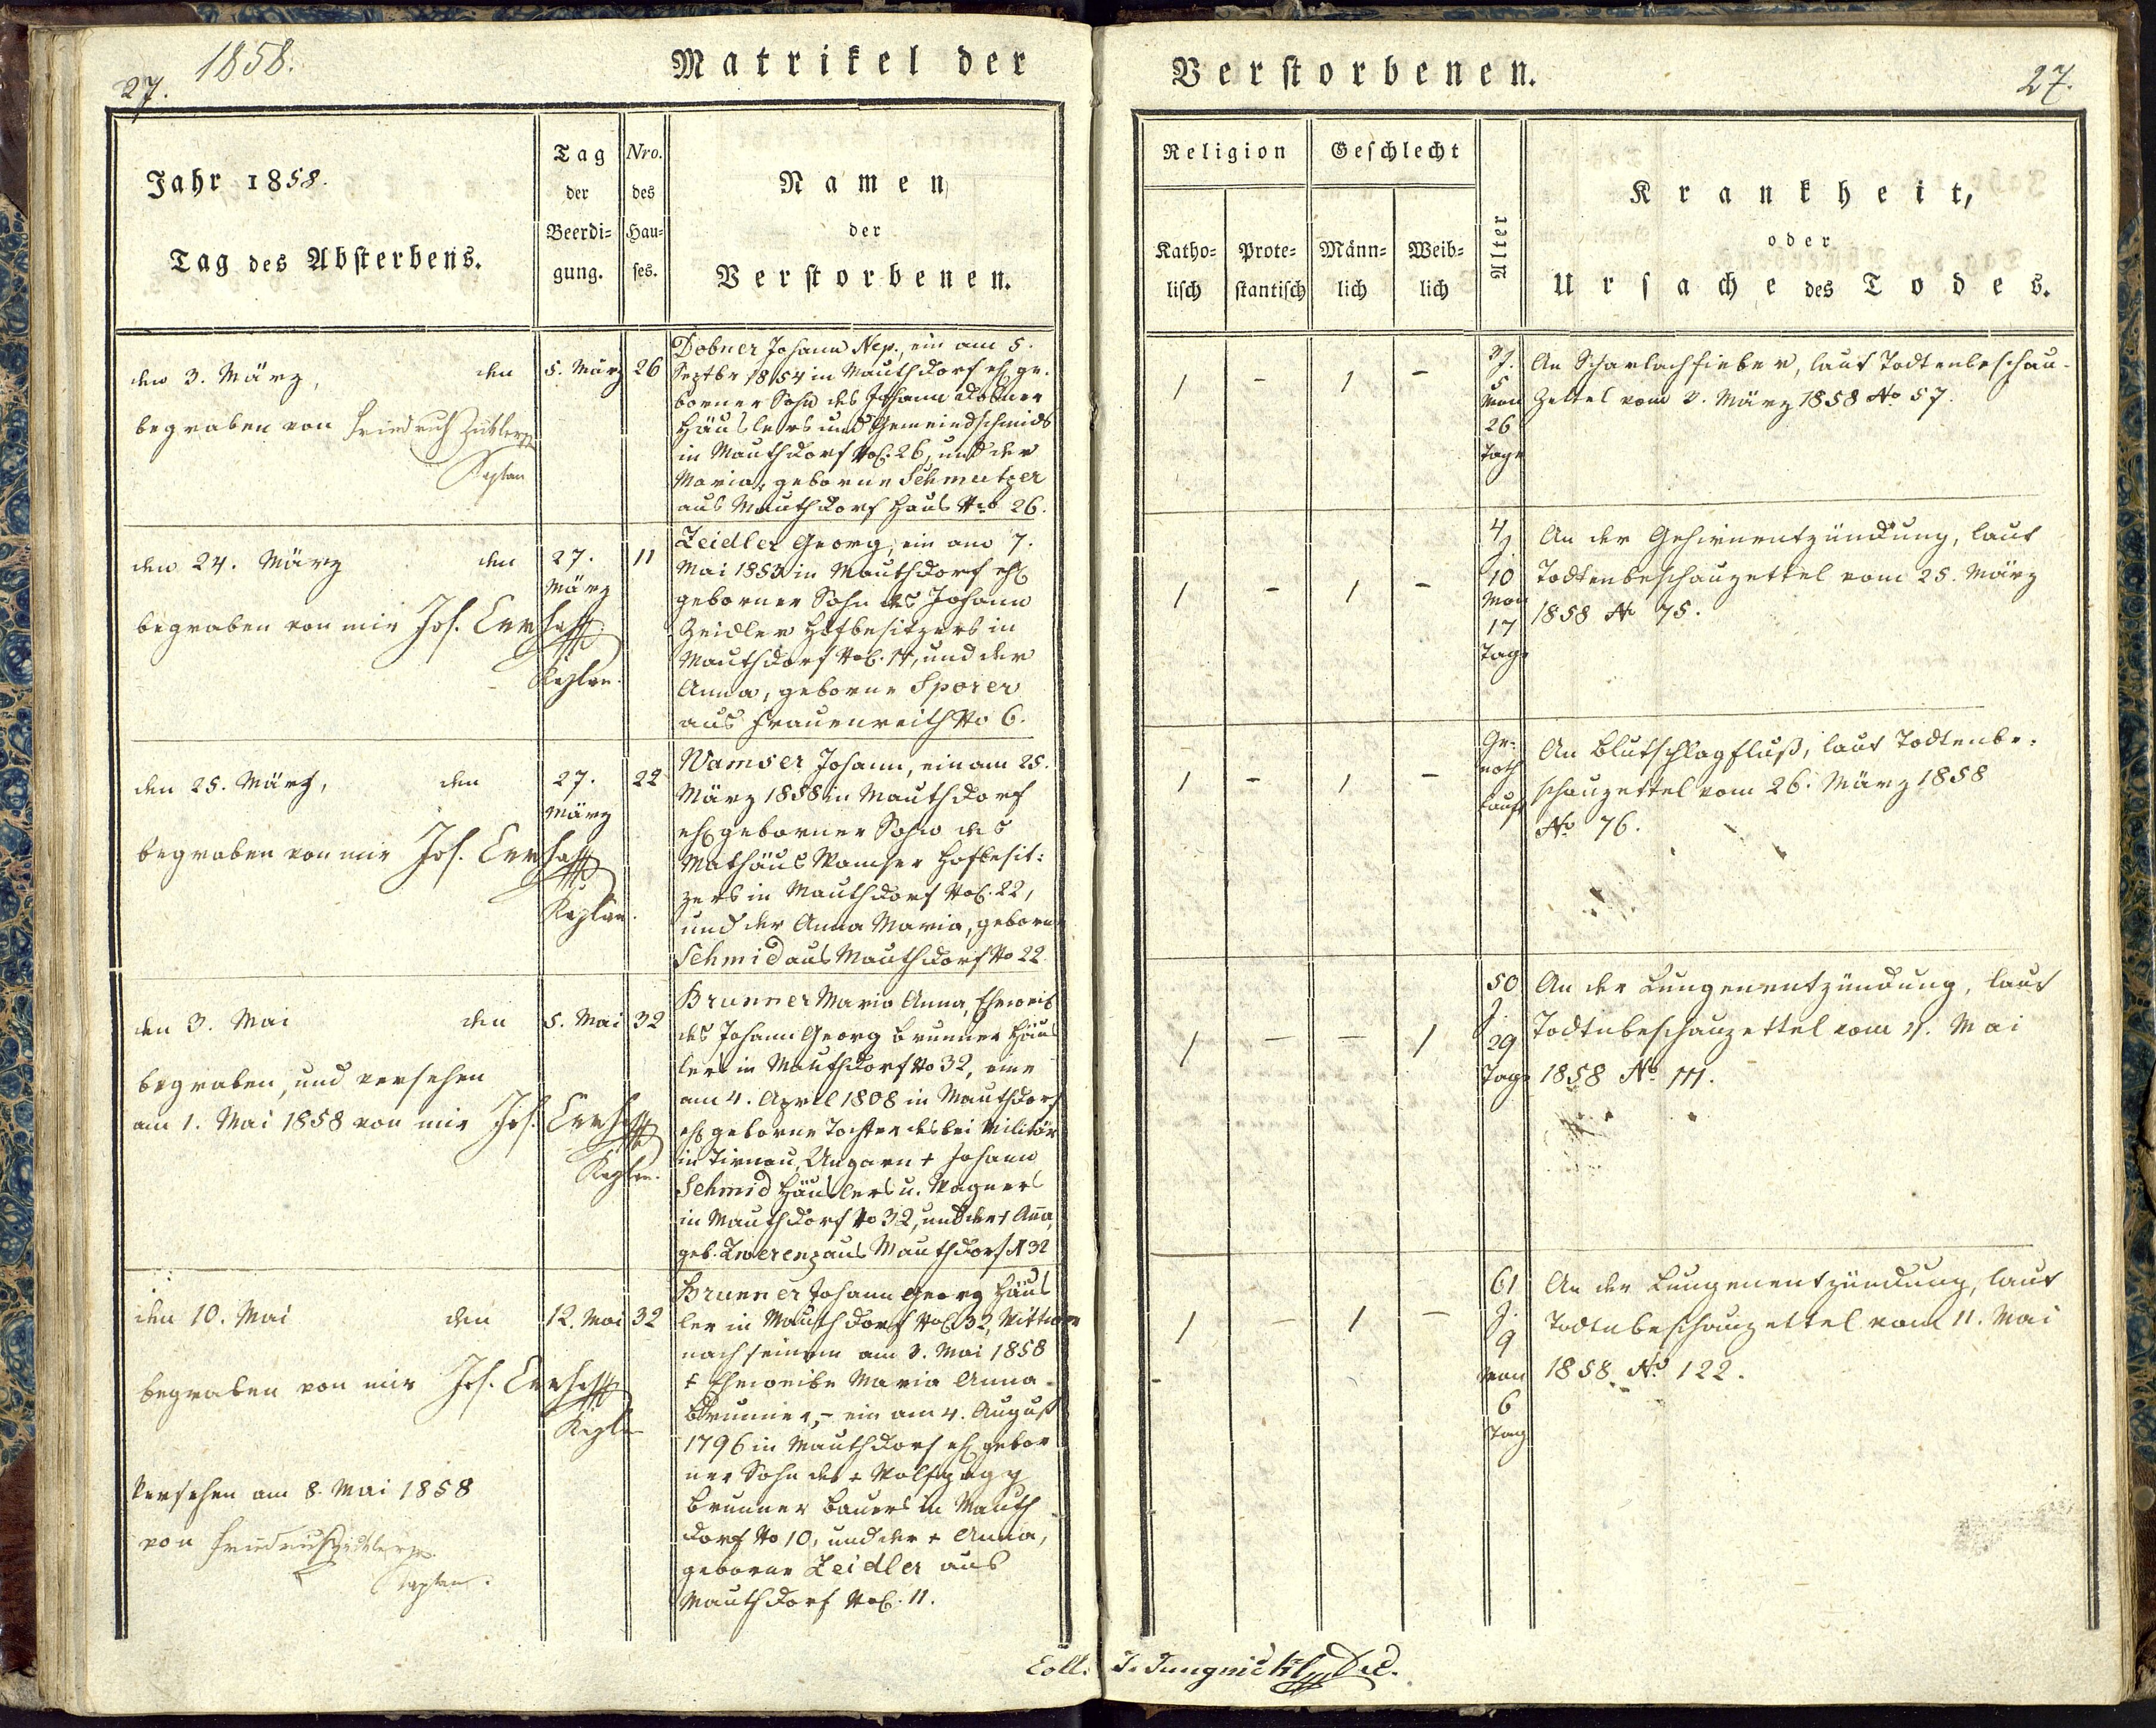 1858.
27.
Matrikel der
Verstorbenen.
27.
Jahr 1858.
Tag des Absterbens.
Tag
der
Beerdi=
gung.
Nro.
des
Hau=
ses.
Namen
der
Verstorbenen.
Religion
Katho=
lisch
Prote=
stantisch
Geschlecht
Männ=
lich
Weib=
lich
Alter
Krankheit,
oder
Ursache des Todes.
den 3. März, den
begraben von Friedrich
Kaplan
5. März
26
Dobner Johann Nep., ein am 5.
Septbr 1854 in Mauthdorf ehl. ge-
borner Sohn des Johann Dobner
Häuslers und Gemeindschmids
in Mauthdorf No. 26, und der
Maria, geborne Schmutzer
aus Mauthdorf Haus Nro 26.
1 - 1 -
3 J.
5
Mon
26
Tage
An Scharlachfieber, laut Todtenbeschau-
Zettel vom 3. März 1858 No 57.
den 24. März den
begraben von mir Jos.
Kaplan.
27.
März
11
Zeidler Georg, ein am 7.
Mai 1853 in Mauthdorf ehl.
geborner Sohn des Johann
Zeidler Hofbesitzers in
Mauthdorf No. 11, und der
Anna, geborne Sporer
aus Frauenreith No 6.
1 - 1 -
4
J.
10
Mon
17
Tage
An der Gehirnentzündung, laut
Todtenbeschauzettel vom 25. März
1858 No 75.
den 25. März, den
begraben von mir Jos.
Kaplan.
27.
März
22
Wamser Johann, ein am 25.
März 1858 in Mauthdorf
ehl. geborner Sohn des
Mathäus Wamser Hofbesit=
zers in Mauthdorf No. 22,
und der Anna Maria, geborne
Schmid aus Mauthdorf No 22
1 - 1 -
Ge=
noth
tauft
An Blutschlagfluß, laut Todtenbe=
schauzettel vom 26. März 1858
No 76.
den 3. Mai den
begraben, und versehen
am 1. Mai 1858 von mir Jos.
Kaplan.
5. Mai
32
Brunner Maria Anna, Eheweib
des Johann Georg Brunner Häus
lers in Mauthdorf No 32, eine
am 4. April 1808 in Mauthdorf
ehl. geborne Tochter des bei Militär
in Tirnau, Ungarn † Johann
Schmid Häuslers u. Wagners
in Mauthdorf No 32, und der † Anna,
geb. Zwerenz aus Mauthdorf N 32
1 - - 1
50
J.
29
Tage
An der Lungenentzündung, laut
Todtnbeschauzettel vom 4. Mai
1858 No 111.
den 10. Mai den
begraben von mir Jos.
Kaplan
Versehen am 8. Mai 1858
von Friedrich
Kaplan.
12. Mai
32
Brunner Johann Georg Häus
ler in Mauthdorf No. 32, Wittwer
nach seinem am 3. Mai 1858
† Eheweibe Maria Anna
Brunner, - ein am 4. August
1796 in Mauthdorf ehl. gebor
ner Sohn des † Wolfgang
Brunner Bauers in Mauth
dorf No 10, und der † Anna,
geborne Zeidler aus
Mauthdorf No. 11.
1 - 1 -
61
J.
9
Mon
6
Tag
An der Lungenentzündung, laut
Todtnbeschauzettel vom 11. Mai
1858 No 122.
Coll.